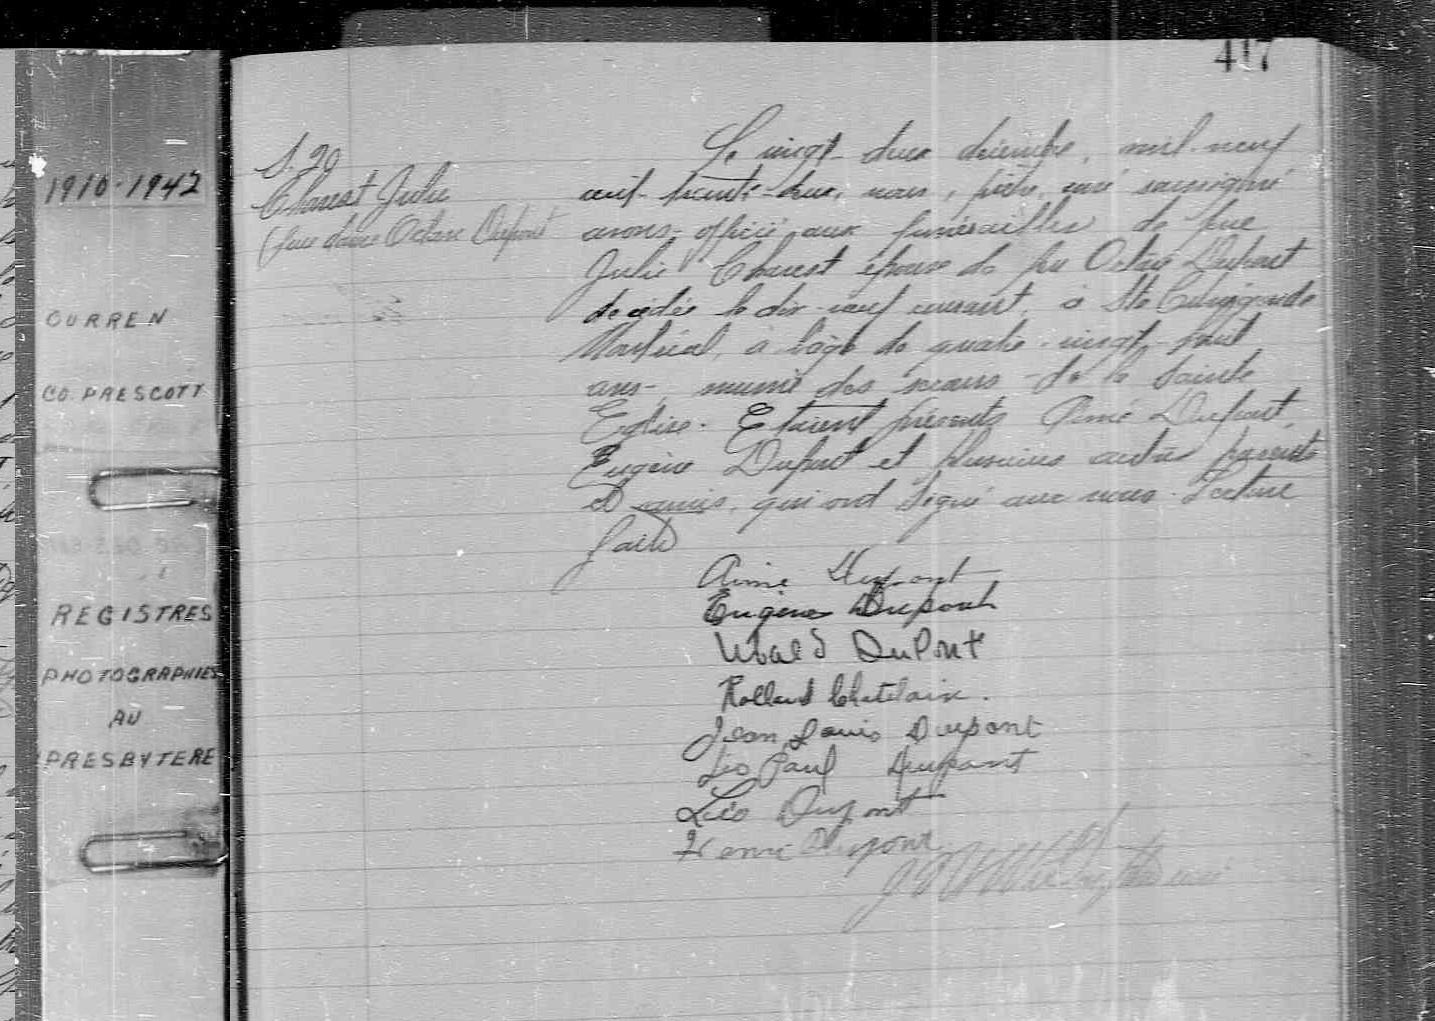 417
1910-1942
CURREN
CO. PRESCOTT
REGISTRES
PHOTOGRAPHIES
AU
PRESBYTERE
S. 20
Charest Julie
(feue dame Octave Dupont
Le vingt-deux décembre, mil-neuf
cent-trente-deux, nous, prêtre, curé soussigné
avons officié aux funérailles de feue
Julie Charest épouse de feu Octave Dupont
décédée le dix-neuf courant, à Ste Cunégonde
Montréal, à l'âge de quatre-vingt-huit
ans, munie des secours de la Sainte
Eglise. Etaient présents Aimé Dupont,
Eugène Dupont et plusieurs autres parents
et amis, qui ont signé avec nous. Lecture
faite
Aimé Dupont
Eugène Dupont
Ubald DuPont
Rolland Chatelain.
Jean Louis Dupont
Léo Paul Dupont
Léo Dupont
Henri Dupont
curé